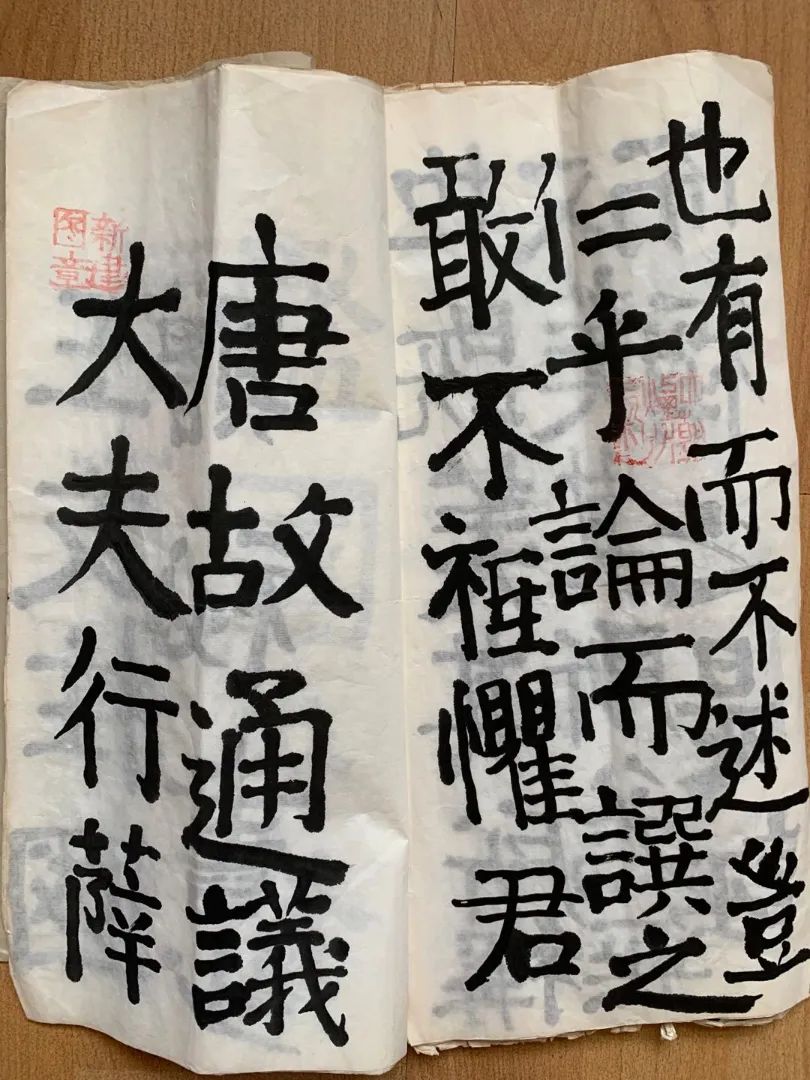 也有而不述豈
仁乎論而譔之
敢不祗懼君
唐故通議
大夫行薛
新建
图章